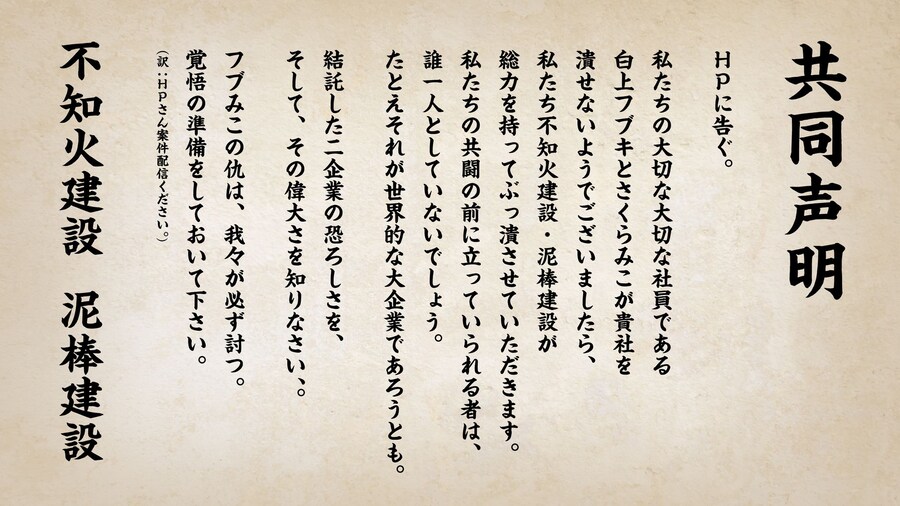 共同声明
HPに告ぐ。
私たちの大切な大切な社員である
白上フブキとさくらみこが貴社を
潰せないようでございましたら、
私たち不知火建設・泥棒建設が
総力を持ってぶっ潰させていただきます。
私たちの共闘の前に立っていられる者は、
誰一人としていないでしょう。
たとえそれが世界的な大企業であろうとも。
結託した二企業の恐ろしさを、
そして、その偉大さを知りなさい、。
フブみこの仇は、我々が必ず討つ。
覚悟の準備をしておいて下さい。
(訳:HPさん案件配信ください。)
不知火建設 泥棒建設